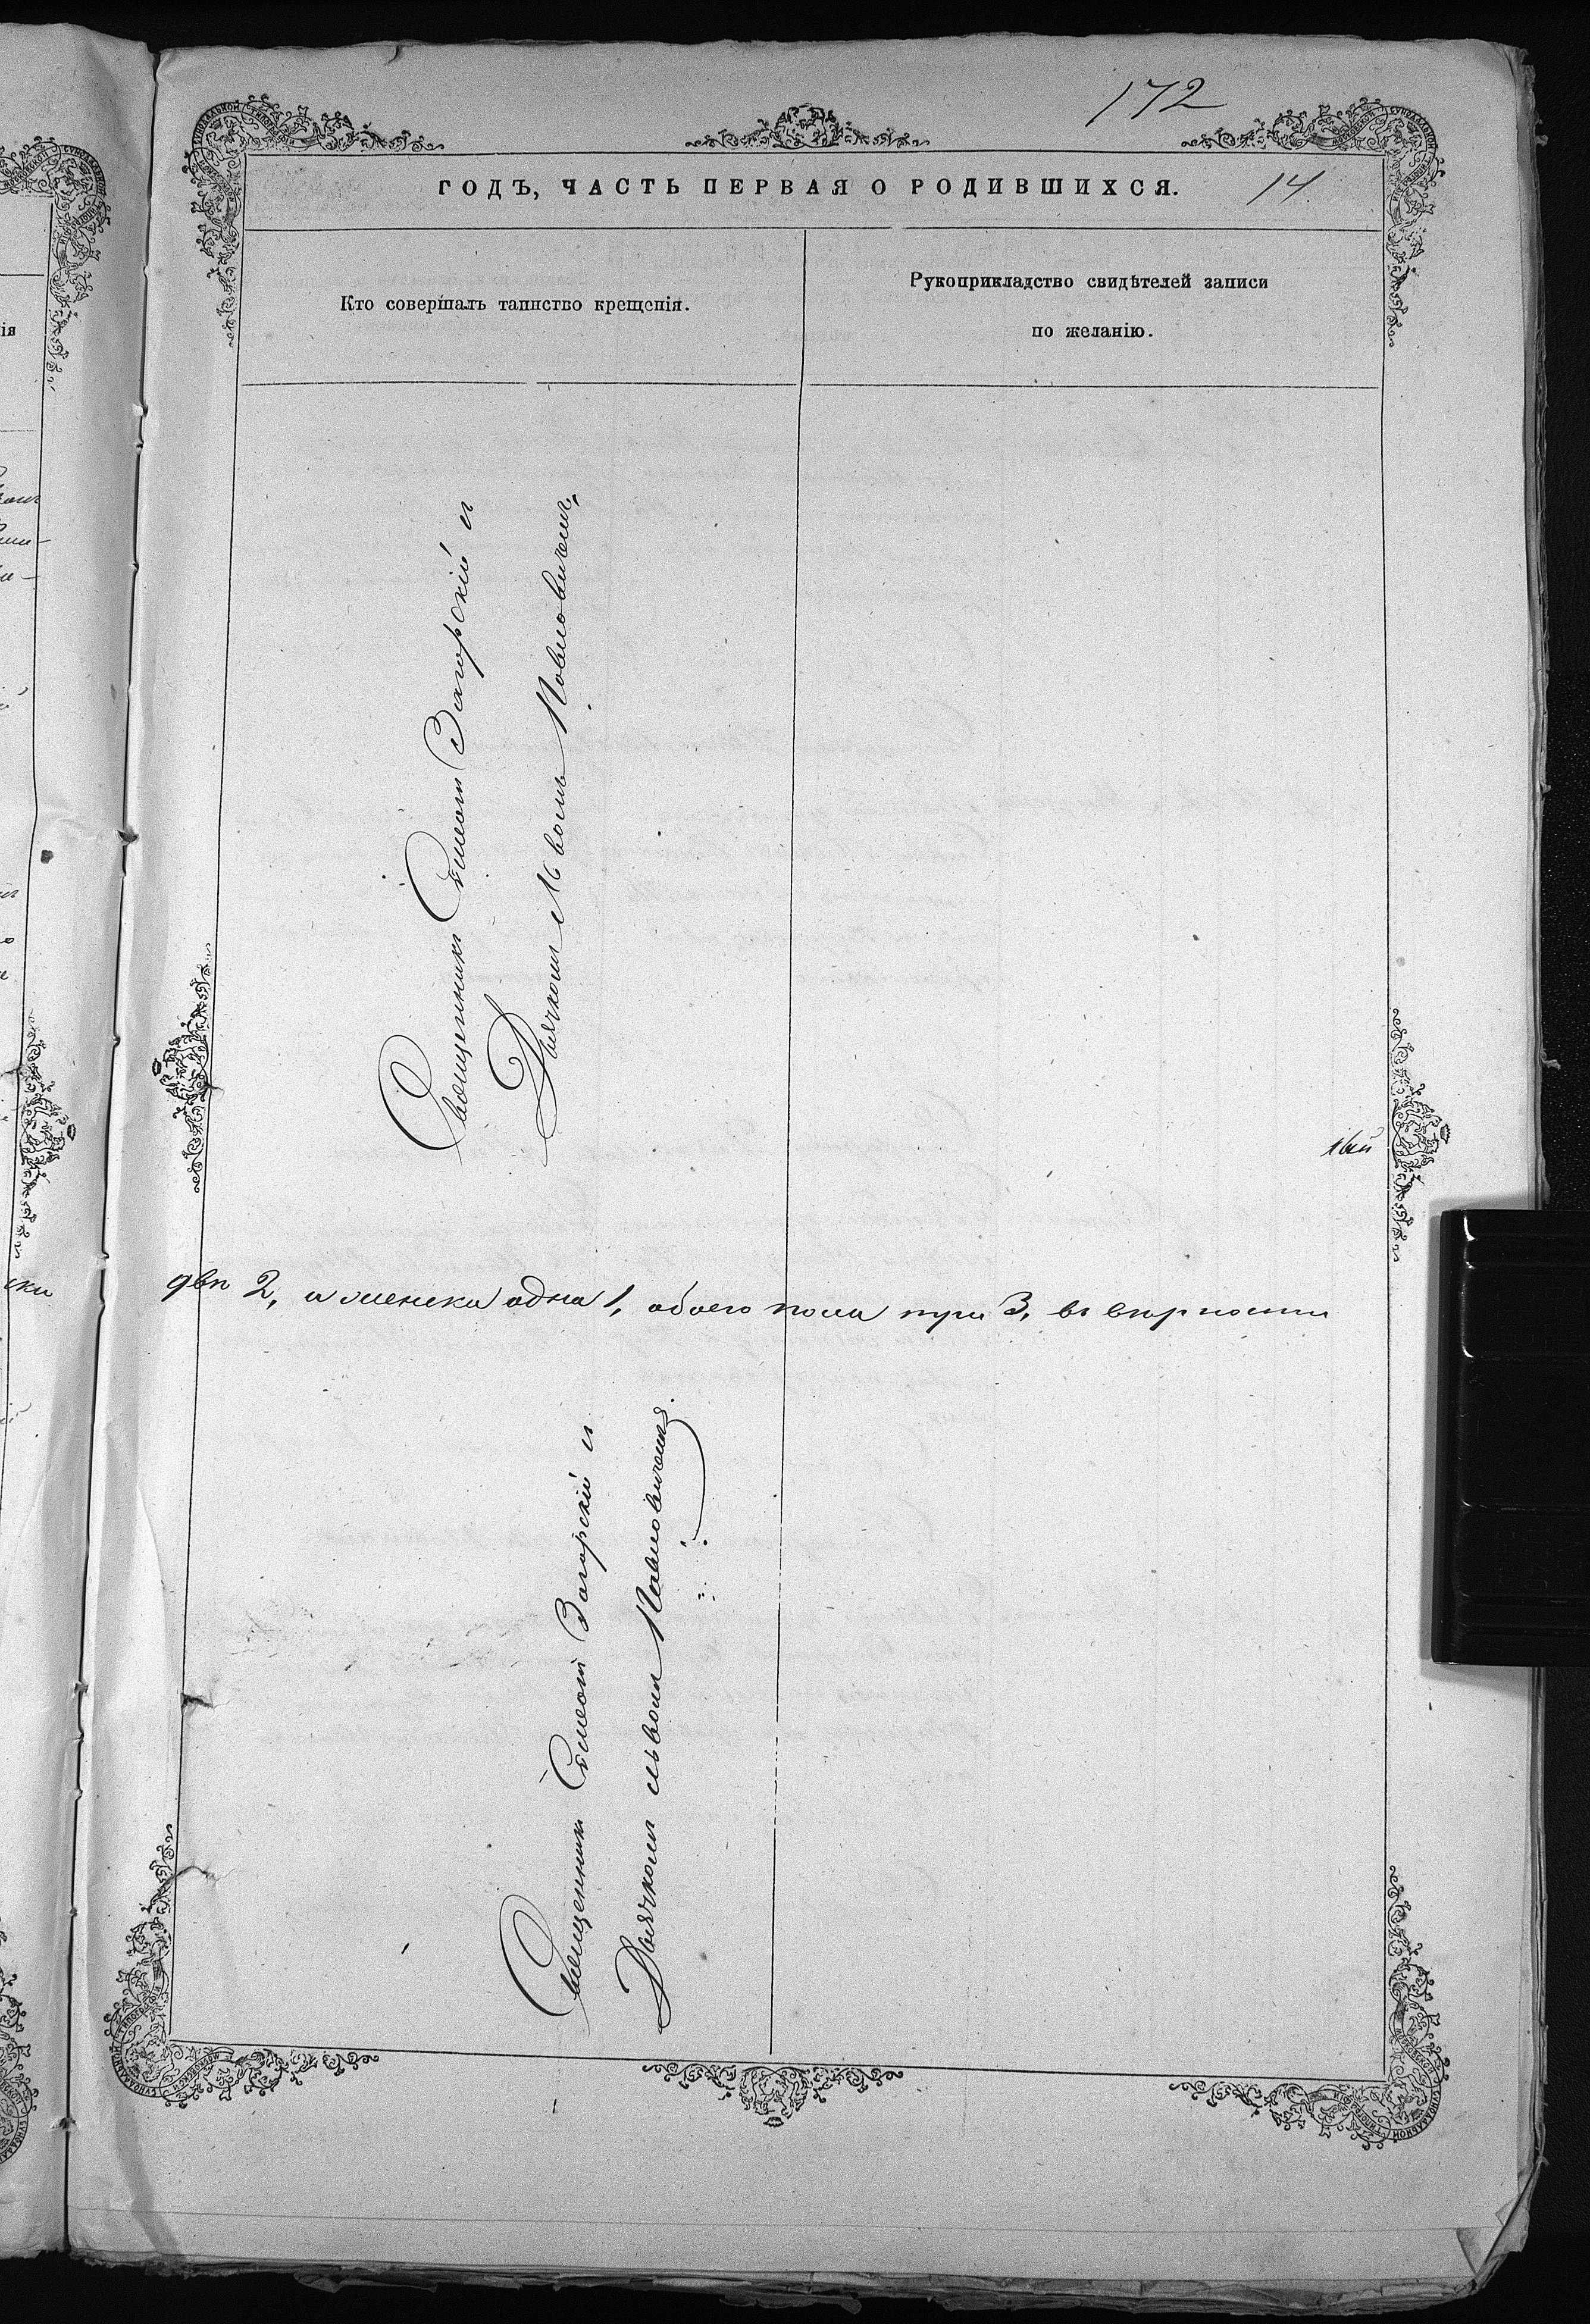 172
ГОДЪ, ЧАСТЬ ПЕРВАЯ О РОДИВШИХСЯ. 14.
Кто совершалъ таинство крещенія.
Рукоприкладство свидѣтелей записи
по желанію.
Священникъ Симеонъ Загорскій и
Дьячкомъ Львомъ Павловичемъ,
2, и женска одна 1, обоего пола три 3, въ вѣрности
Священникъ Симеонъ Загорскій и
Дьячкомъ Львомъ Павловичемъ.